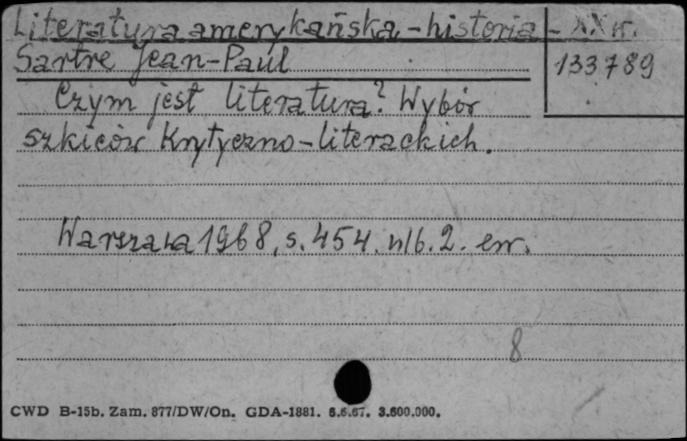 Literatura amerykańska - historia - XX w.
Sartre Jean-Paul
133789
Czym jest literatura? Wybór
szkiców krytyczno-literackich.
Warszawa 1968, s. 454. nlb. 2. err.
8
CWD B-15b. Zam. 877/DW/On. GDA-1881. 6.6.67. 3.600.000.